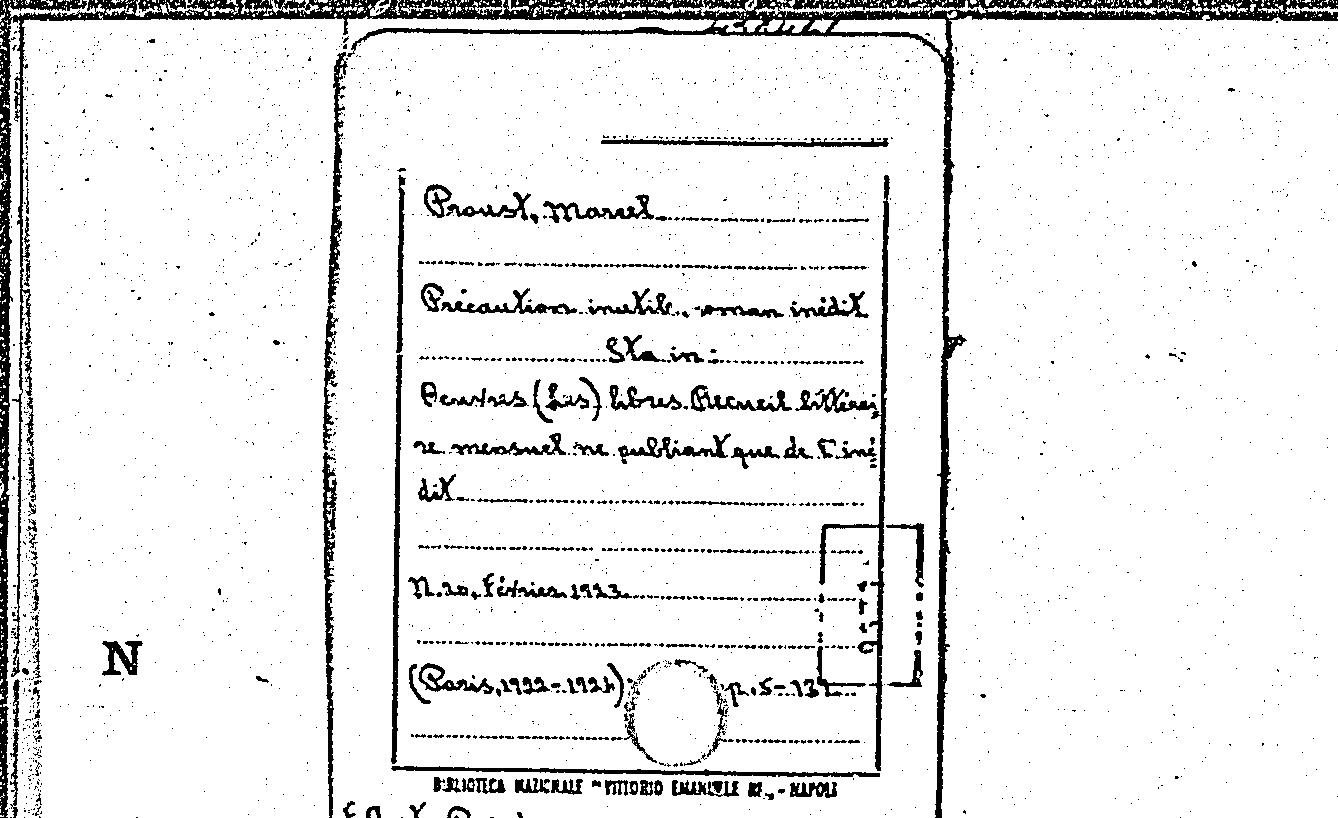 Proust, Marcel
Précaution inutile, roman inédit
Sta in:
Oeuvres (Les) libres. Recueil littérai
re mensuel ne publiant que de l'iné
dit
N. 20, Février 1923
(Paris, 1922-1924) p. 5-139
BIBLIOTECA NAZIONALE "VITTORIO EMANUELE III" - NAPOLI
N